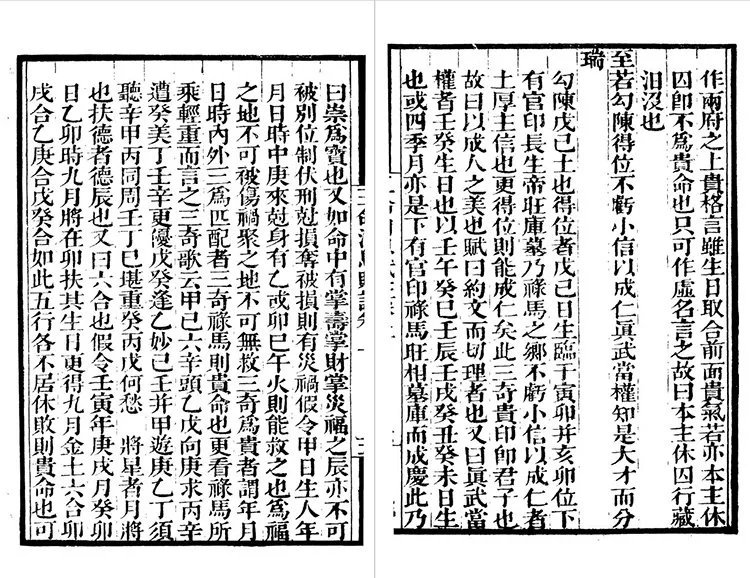 作兩府之上貴格言雖生日取合前面貴氣若亦本主休
囚卽不爲貴命也只可作虛名言之故曰本主休囚行藏
汩沒也
至若勾陳得位不虧小信以成仁眞武當權知是大才而分
瑞
勾陳戊己土也得位者戊己日生臨于寅卯并亥卯位下
有官印長生帝旺庫墓乃祿馬之鄉不虧小信以成仁者
土厚主信也更得位則能成仁矣此三奇貴印卽君子也
故曰以成人之美也賦曰約文而切理者也又曰眞武當
權者壬癸生日也以壬午癸巳壬辰壬戌癸丑癸未日生
也或四季月亦是下有官印祿馬旺相墓庫而成慶此乃
曰崇爲寶也又如命中有掌壽掌財掌災福之辰亦不可
被別位制伏刑尅損奪被損則有災禍假令甲日生人年
月日時中庚來尅身有乙或卯巳午火則能救之也爲福
之地不可被傷禍聚之地不可無救三奇爲貴者謂年月
日時內外三爲匹配者三奇祿馬則貴命也更看祿馬所
乘輕重而言之三奇歌云甲己六辛頭乙戊向庚求丙辛
遭癸美丁壬辛更優戊癸逢乙妙己壬并甲遊庚乙丁須
聽辛甲丙同周壬丁巳堪重癸丙戊何愁 將星者月將
也扶德者德辰也又曰六合也假令壬寅年庚戌月癸卯
日乙卯時九月將在卯扶其生日更得九月金土六合卯
戌合乙庚合戊癸合如此五行各不居休敗則貴命也可